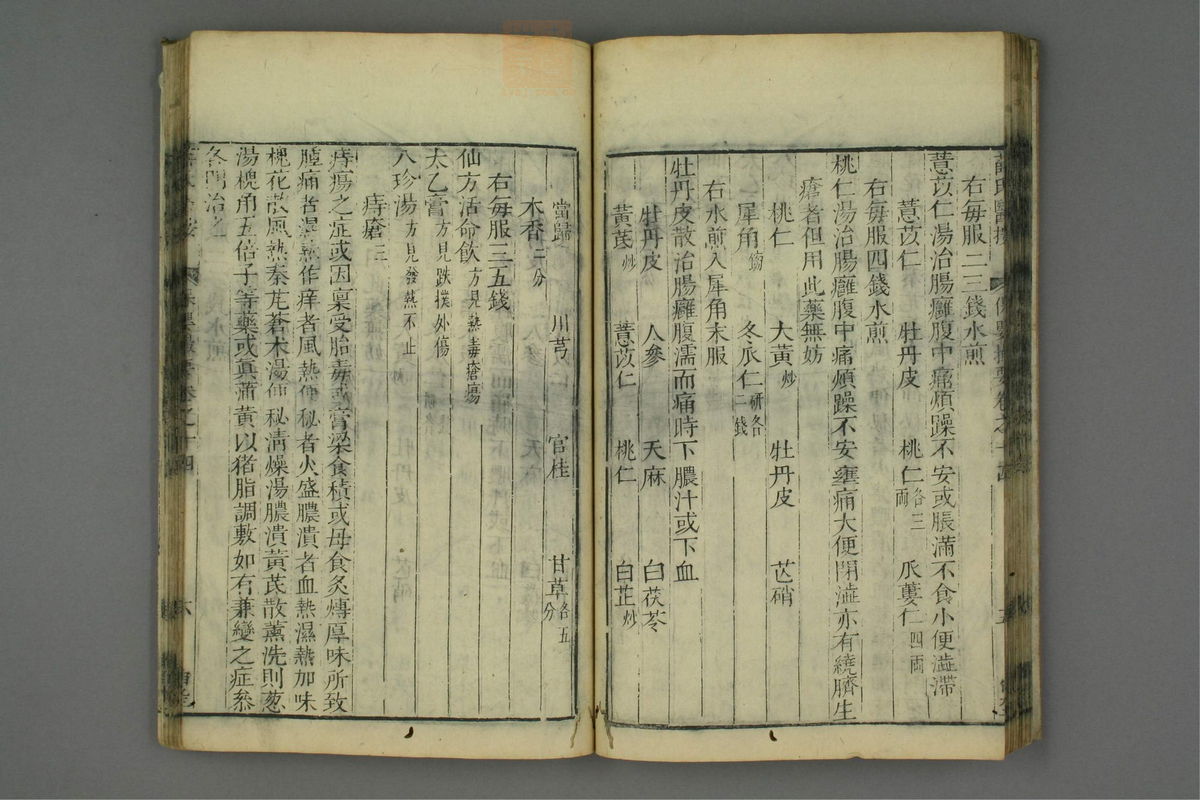 右每服二三錢水煎
薏苡仁湯治腸癰腹中痛煩躁不安或脹滿不食小便澁滯
薏苡仁 牡丹皮 桃仁各三兩 瓜蔞仁四兩
右每服四錢水煎
桃仁湯治腸癰腹中痛煩躁不安壅痛大便閉澁亦有繞臍生
瘡者但用此藥無妨
桃仁 大黃炒 牡丹皮 芒硝
犀角鎊 冬瓜仁研各二錢
右水煎入犀角末服
牡丹皮散治腸癰腹濡而痛時下膿汁或下血
牡丹皮 人參 天麻 白茯苓
黃芪炒 薏苡仁 桃仁 白芷炒
當歸 川芎 官桂 甘草各五分
木香二分
右每服三五錢
仙方活命飲方見熱毒瘡瘍
太乙膏方見跌撲外傷
八珍湯方見發熱不止
痔瘡三
痔瘍之症或因稟受胎毒或膏粱食積或母食炙煿厚味所致
腫痛者濕熱作痒者風熱便秘者火盛膿潰者血熱濕熱加味
槐花散風熱秦艽蒼朮湯便秘清燥湯膿潰黃芪散薰洗則葱
湯槐角五倍子等藥或眞蒲黃以猪脂調敷如有兼變之症叅
各門治之